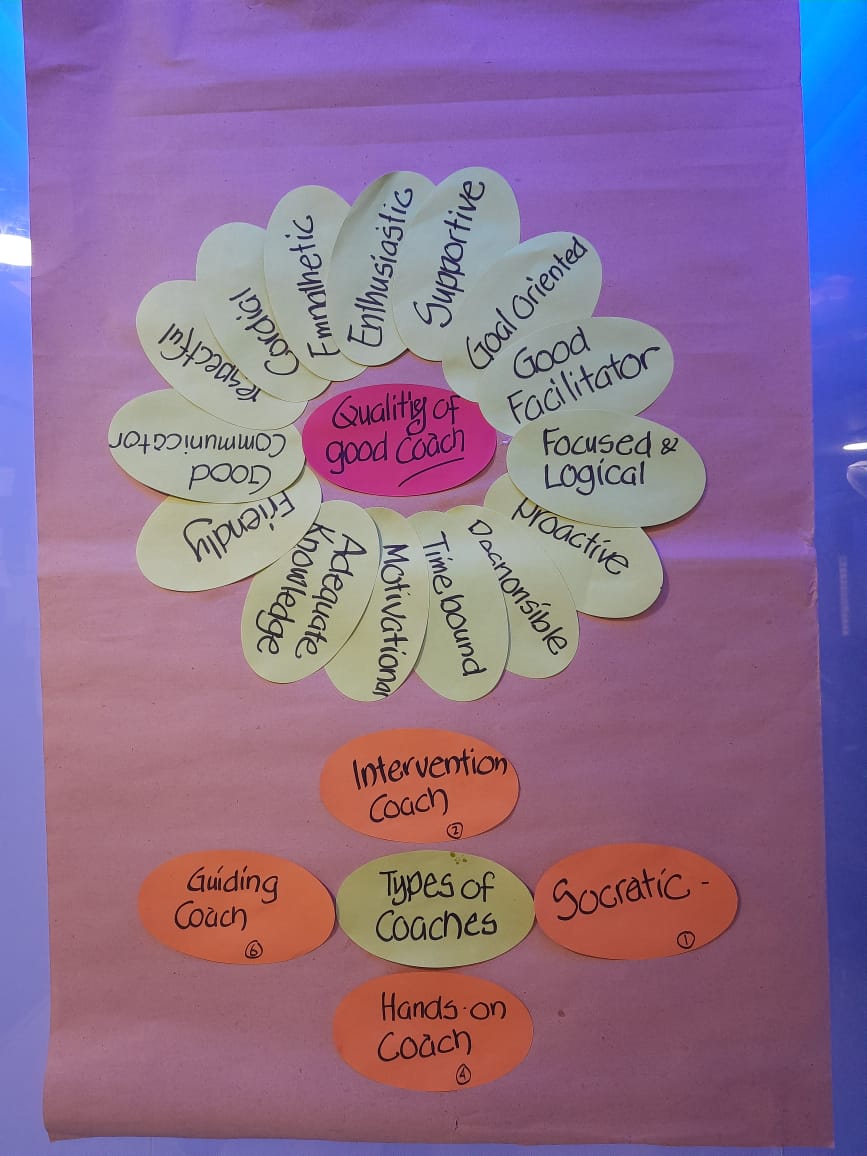 Supportive
Enthusiastic
Empathetic
Cordial
respectful
Good
Communicator
Friendly
Adequate
Knowledge
Motivational
Time bound
Responsible
Proactive
Focused &
Logical
Good
Facilitator
Goal Oriented
Qualities of
good coach
Intervention
Coach
2
Guiding
Coach
6
Types of
Coaches
Socratic -
1
Hands-on
Coach
4